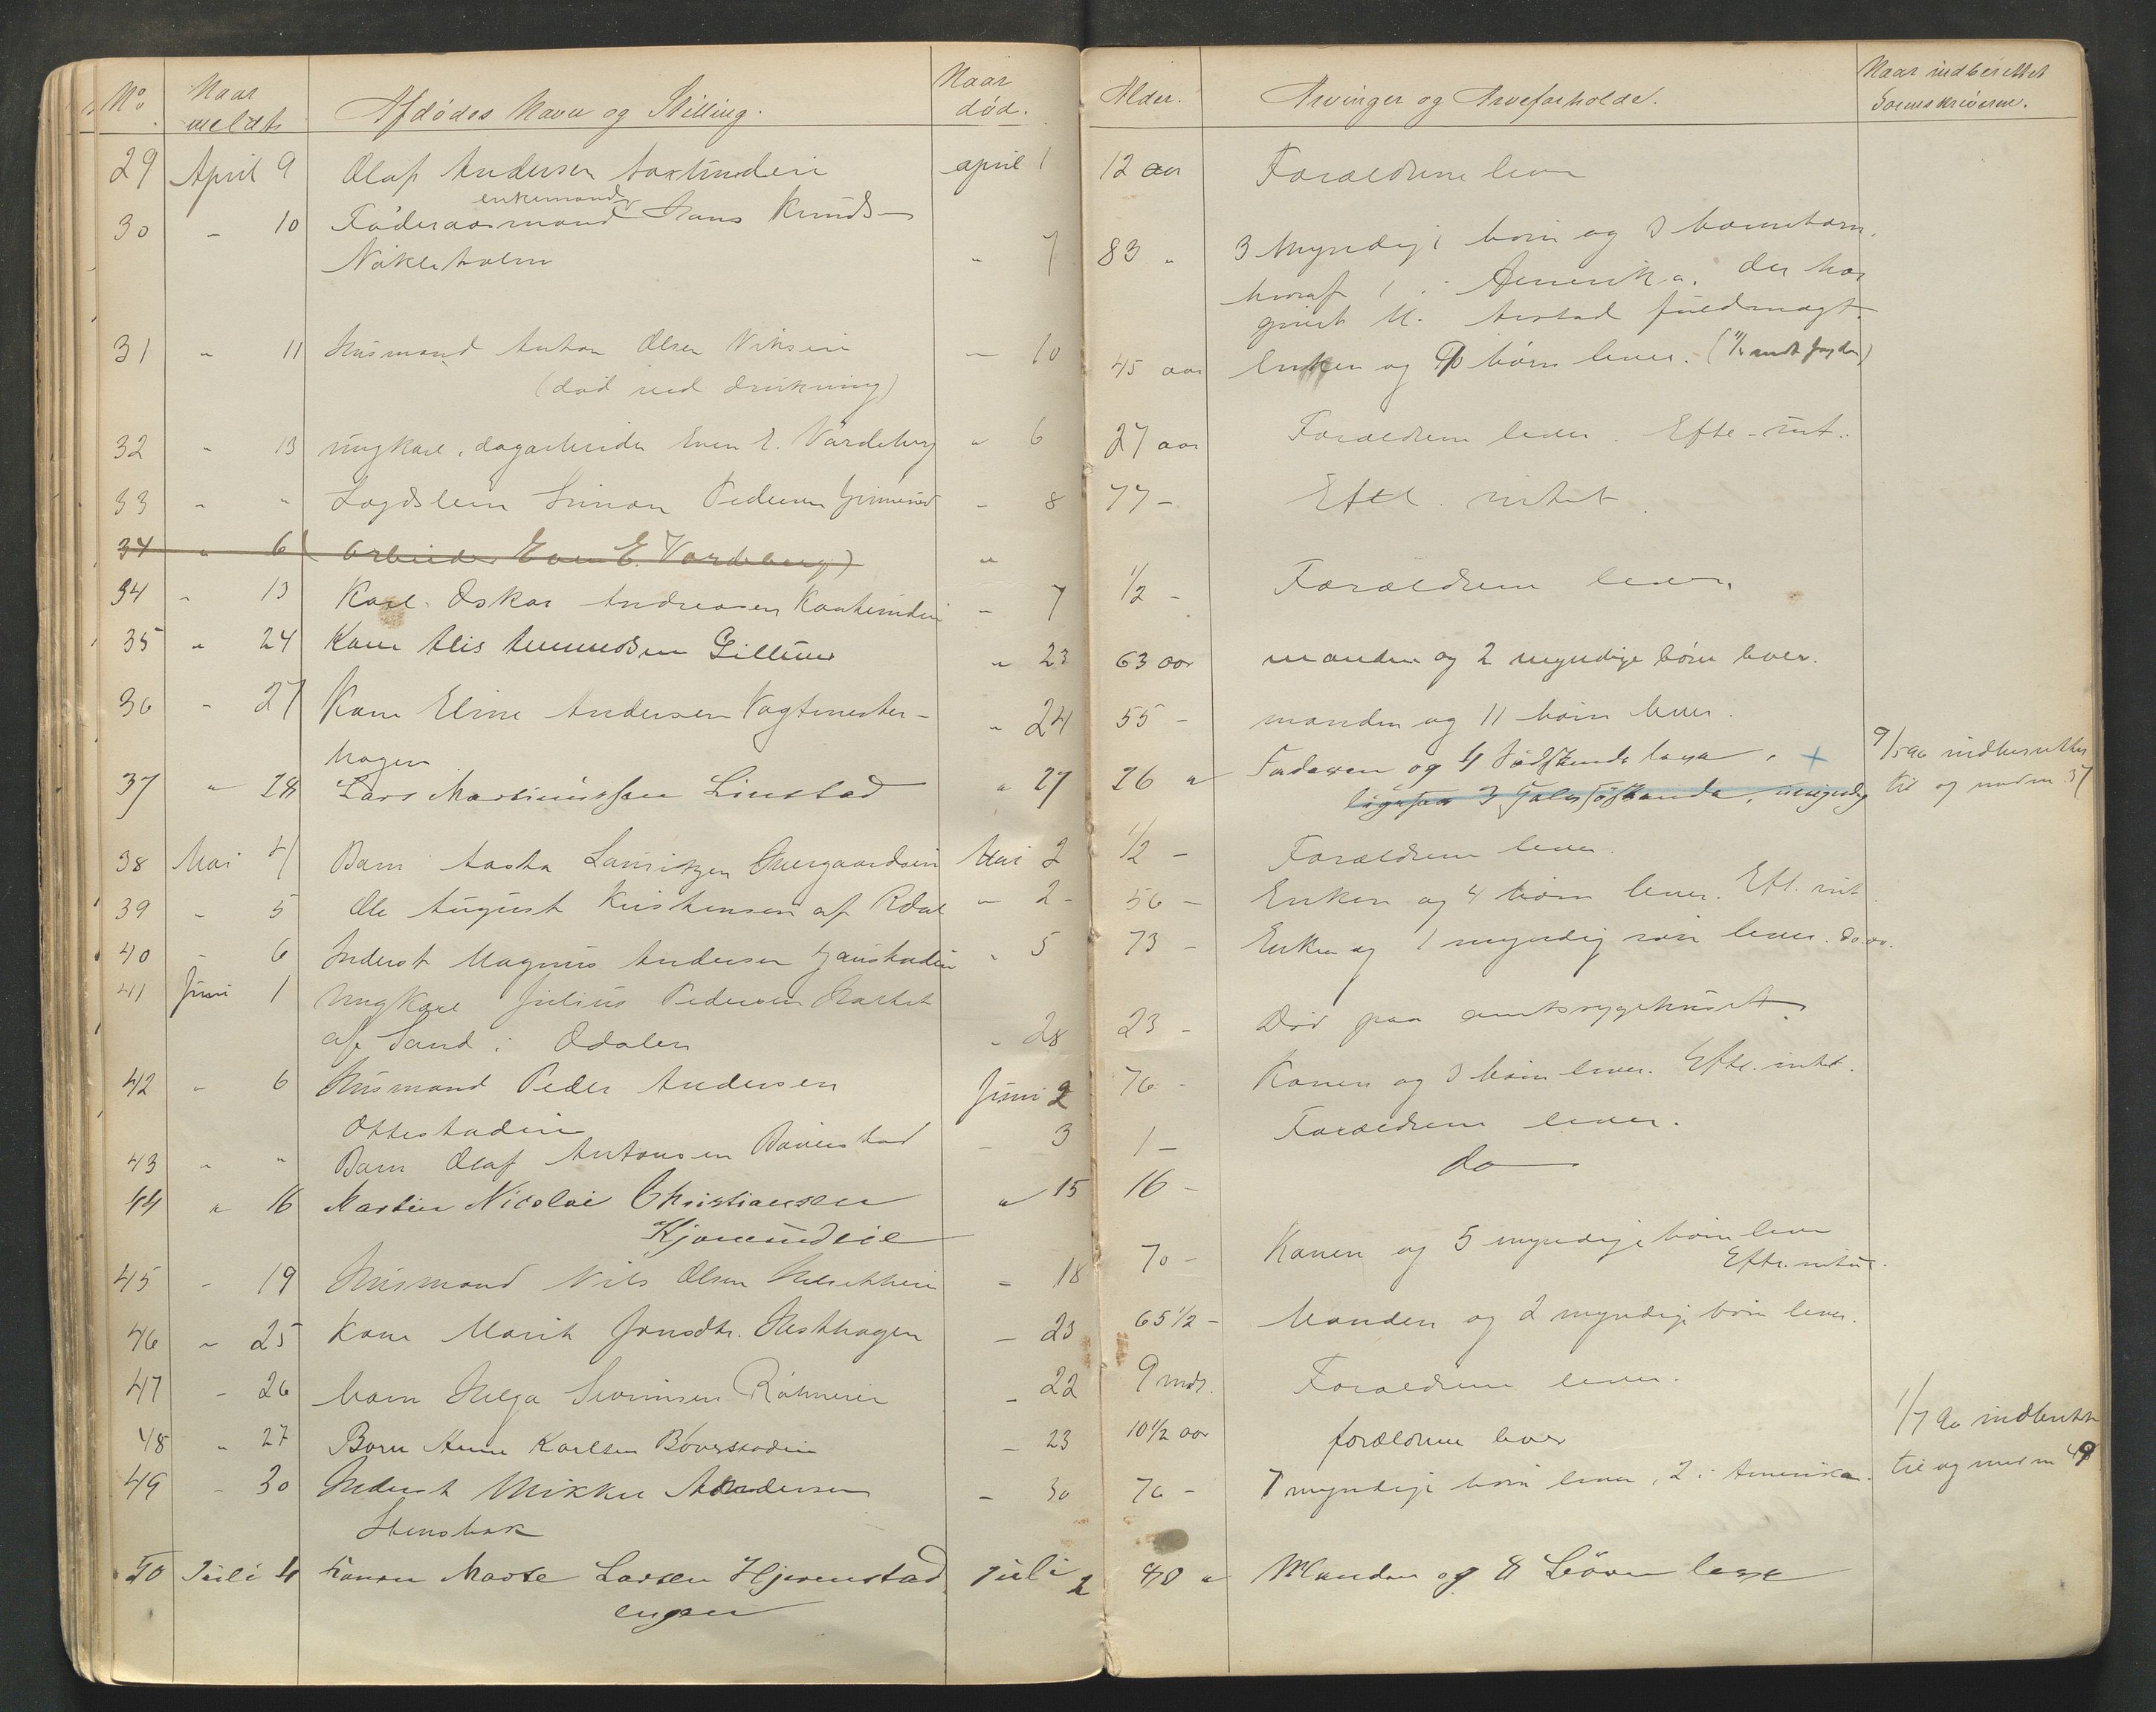 No Naar meldt Afdødes Navn og Stilling. Naar død. Alder. Arvinger og Arveforholde. Naar indberettet Sorenskriveren.
29 April 9 Olaf Andersen april 1 12 aar Forældrene lever
enkemand
30 - 10 Føderaasmand Hans Knuds-
Nökleholm " 7 83 " 3 myndige børn og 3 barnebarn,
hvoraf 1 i Amerika, der har
givet M. Arstad fuldmagt.
31 " 11 Husmand Anton Olsen Vikseie " 10 45 aar Enken og 9 børn lever.
(død ved drukning)
32 " 13 ungkarl, dagarbeider Even E. Vardeberg " 6 27 aar Forældrene lever. Efte. int.
33 " " Lægdslem Simon Pedersen - 8 77 - Eftl. intet.
34 " 6 (Arbeider Even E. Vardeberg) "
34 " 13 Karl Oskar Andreasen - 7 1/2 - Forældrene lever.
35 " 24 Kone Alis Gillund " 23 63 aar manden og 2 myndige børn lever.
36 " 27 Kone Eline Andersen Vagtmester- " 24 55 - manden og 11 børn lever.
hagen
37 " 28 Lars Martiniussen Linstad " 27 26 " Faderen og 4 Södskende leva. + 9/5 90 indberettet
3 myndig til og med no. 37
38 Mai 4 Barn Aasta Lauritzen Mai 2 1/2 - Forældrene lever.
39 - 5 Ole August Kristensen af Rdal " 2 - 56 - Enken og 4 børn lever. Eft. int.
40 - 6 Inderst Magnus Andersen " 5 73 - Enken og 1 myndig søn lever. do. do.
41 Juni 1 Ungkarl Julius Pedersen
af Sand i Odalen - 28 23 - Død paa amtssygehuset.
42 - 6 Husmand Peder Andersen Juni 2 76 - Konen og 3 børn lever. Efte. intet.
Ottestadeie
43 " " Barn Olaf Antonsen - 3 1 - Forældrene lever.
44 " 16 Martin Nicolai Christiansen " 15 16 - do
45 - 19 Husmand Nils Olsen - 18 70 - Konen og 5 myndige børn lever
Efte. intet.
46 - 25 Kone Marit Jonsdtr. Hesthagen - 23 65 1/2 - Manden og 2 myndige børn lever.
47 - 26 barn Helga - 22 9 mdr. Forældrene lever.
48 " 27 Barn Anne Karlsen - 23 10 1/2 aar forældrene lever 1/7 90 indberettet
49 - 30 Inderst Mikkel Andersen - 30 76 - 7 myndige børn lever, 2 i Amerika. til og med no 49
Stensbak
50 Juli 4 Konen Marte Larsen Hjemstad juli 2 40 " Manden og 8 Börn leve
engen